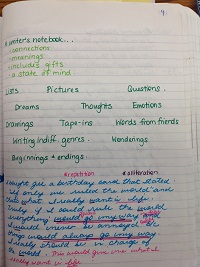 A writer's notebook...
- connections
- meanings
- includes gifts
- a state of mind
Lists Pictures Questions
Dreams Thoughts Emotions
Drawings Tape-ins Words from friends
Writing in diff. genres. Wonderings
Beginnings + endings.
repetition alliteration
I once got a birthday card that stated
if only we ruled the world and
that's what I really want in life.
Truly if I could rule the world
everything would go my way
I would never be annoyed or
things would always go my way
I really should be in charge of
a world. This would give me what I
really want in life.